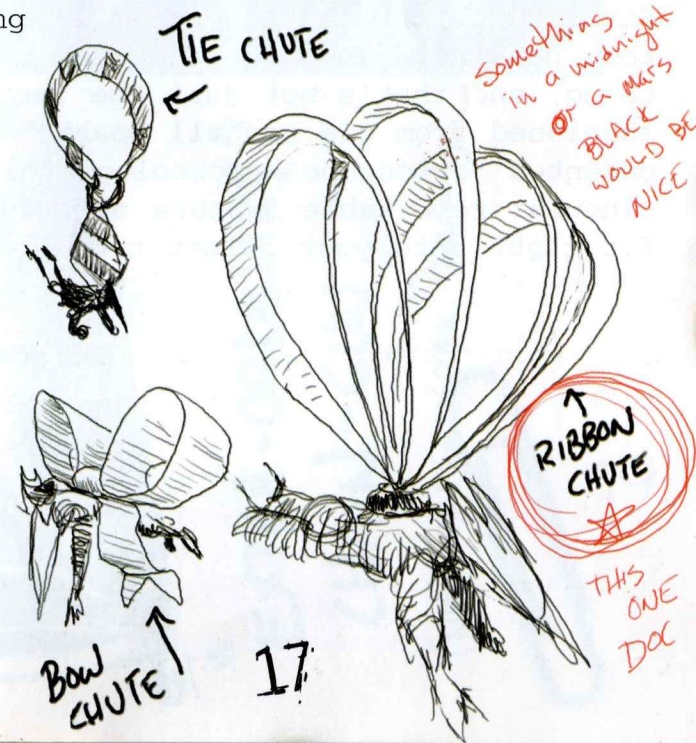 ng
TIE CHUTE
something
in a midnight
or a mars
BLACK
WOULD BE
NICE
RIBBON
CHUTE
THIS
ONE
DOC
BOW
CHUTE
17